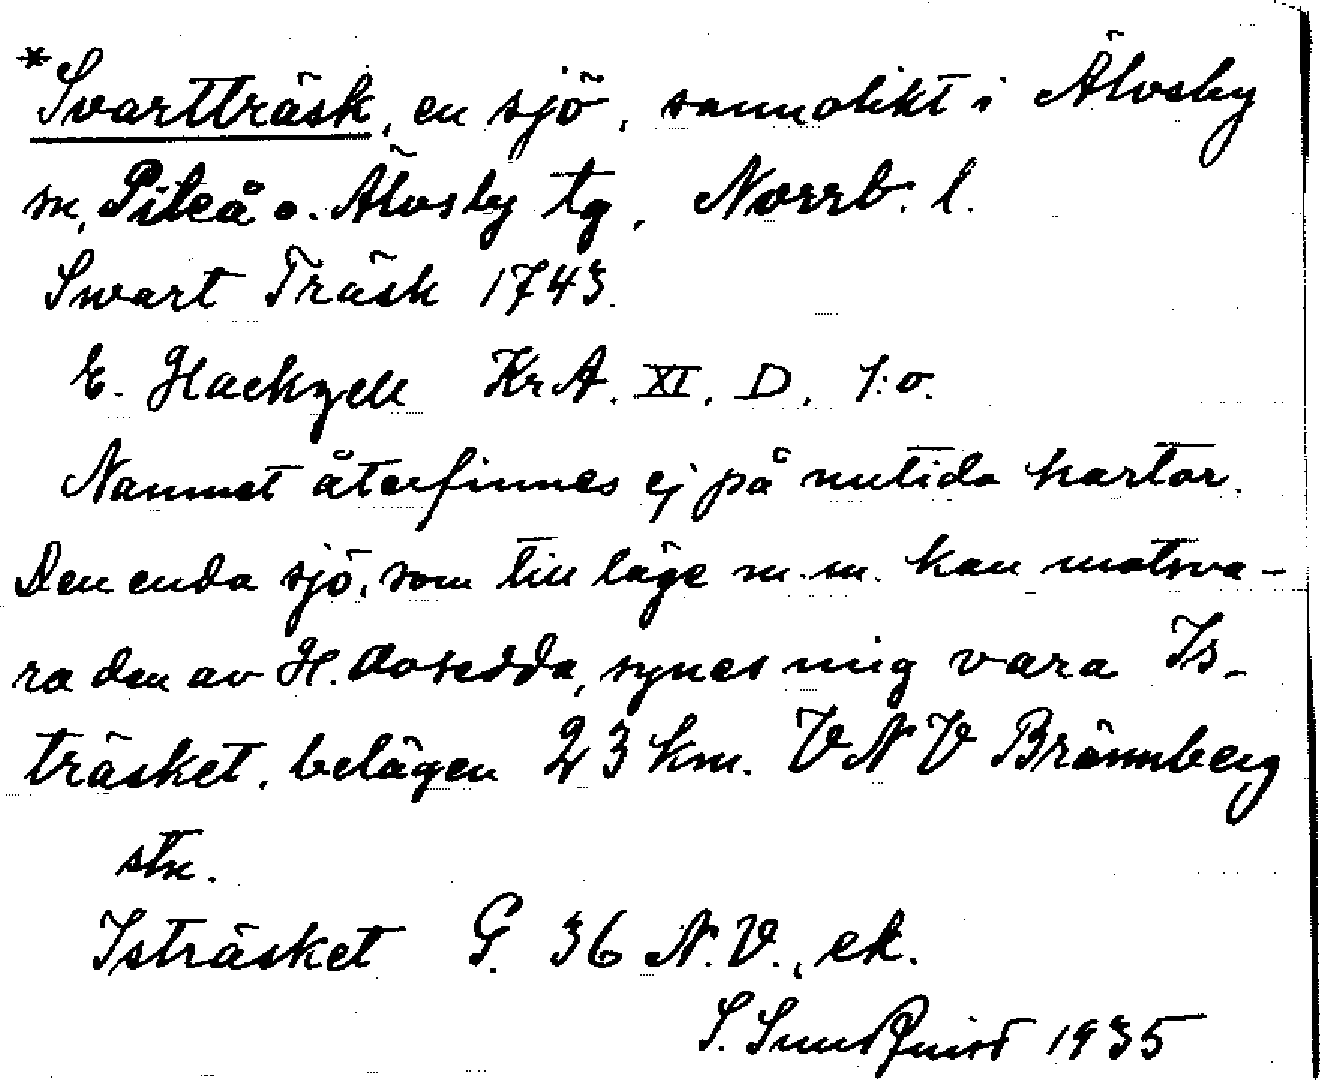 *Svartträsk, en sjö, sannolikt i Älvsby
sn, Piteå o. Älvsby tg, Norrb. l.
Swart Träsk 1743.
E. Hackzell KrA. XI. D. 1:o.
Namnet återfinnes ej på nutida kartor.
Den enda sjö, som till läge m.m. kan motsva-
ra den av H. avsedda, synes mig vara Is-
träsket, belägen 23 km. VNV Brännberg
stn.
Isträsket G. 36 N.V., ek.
S. Sundquist 1935